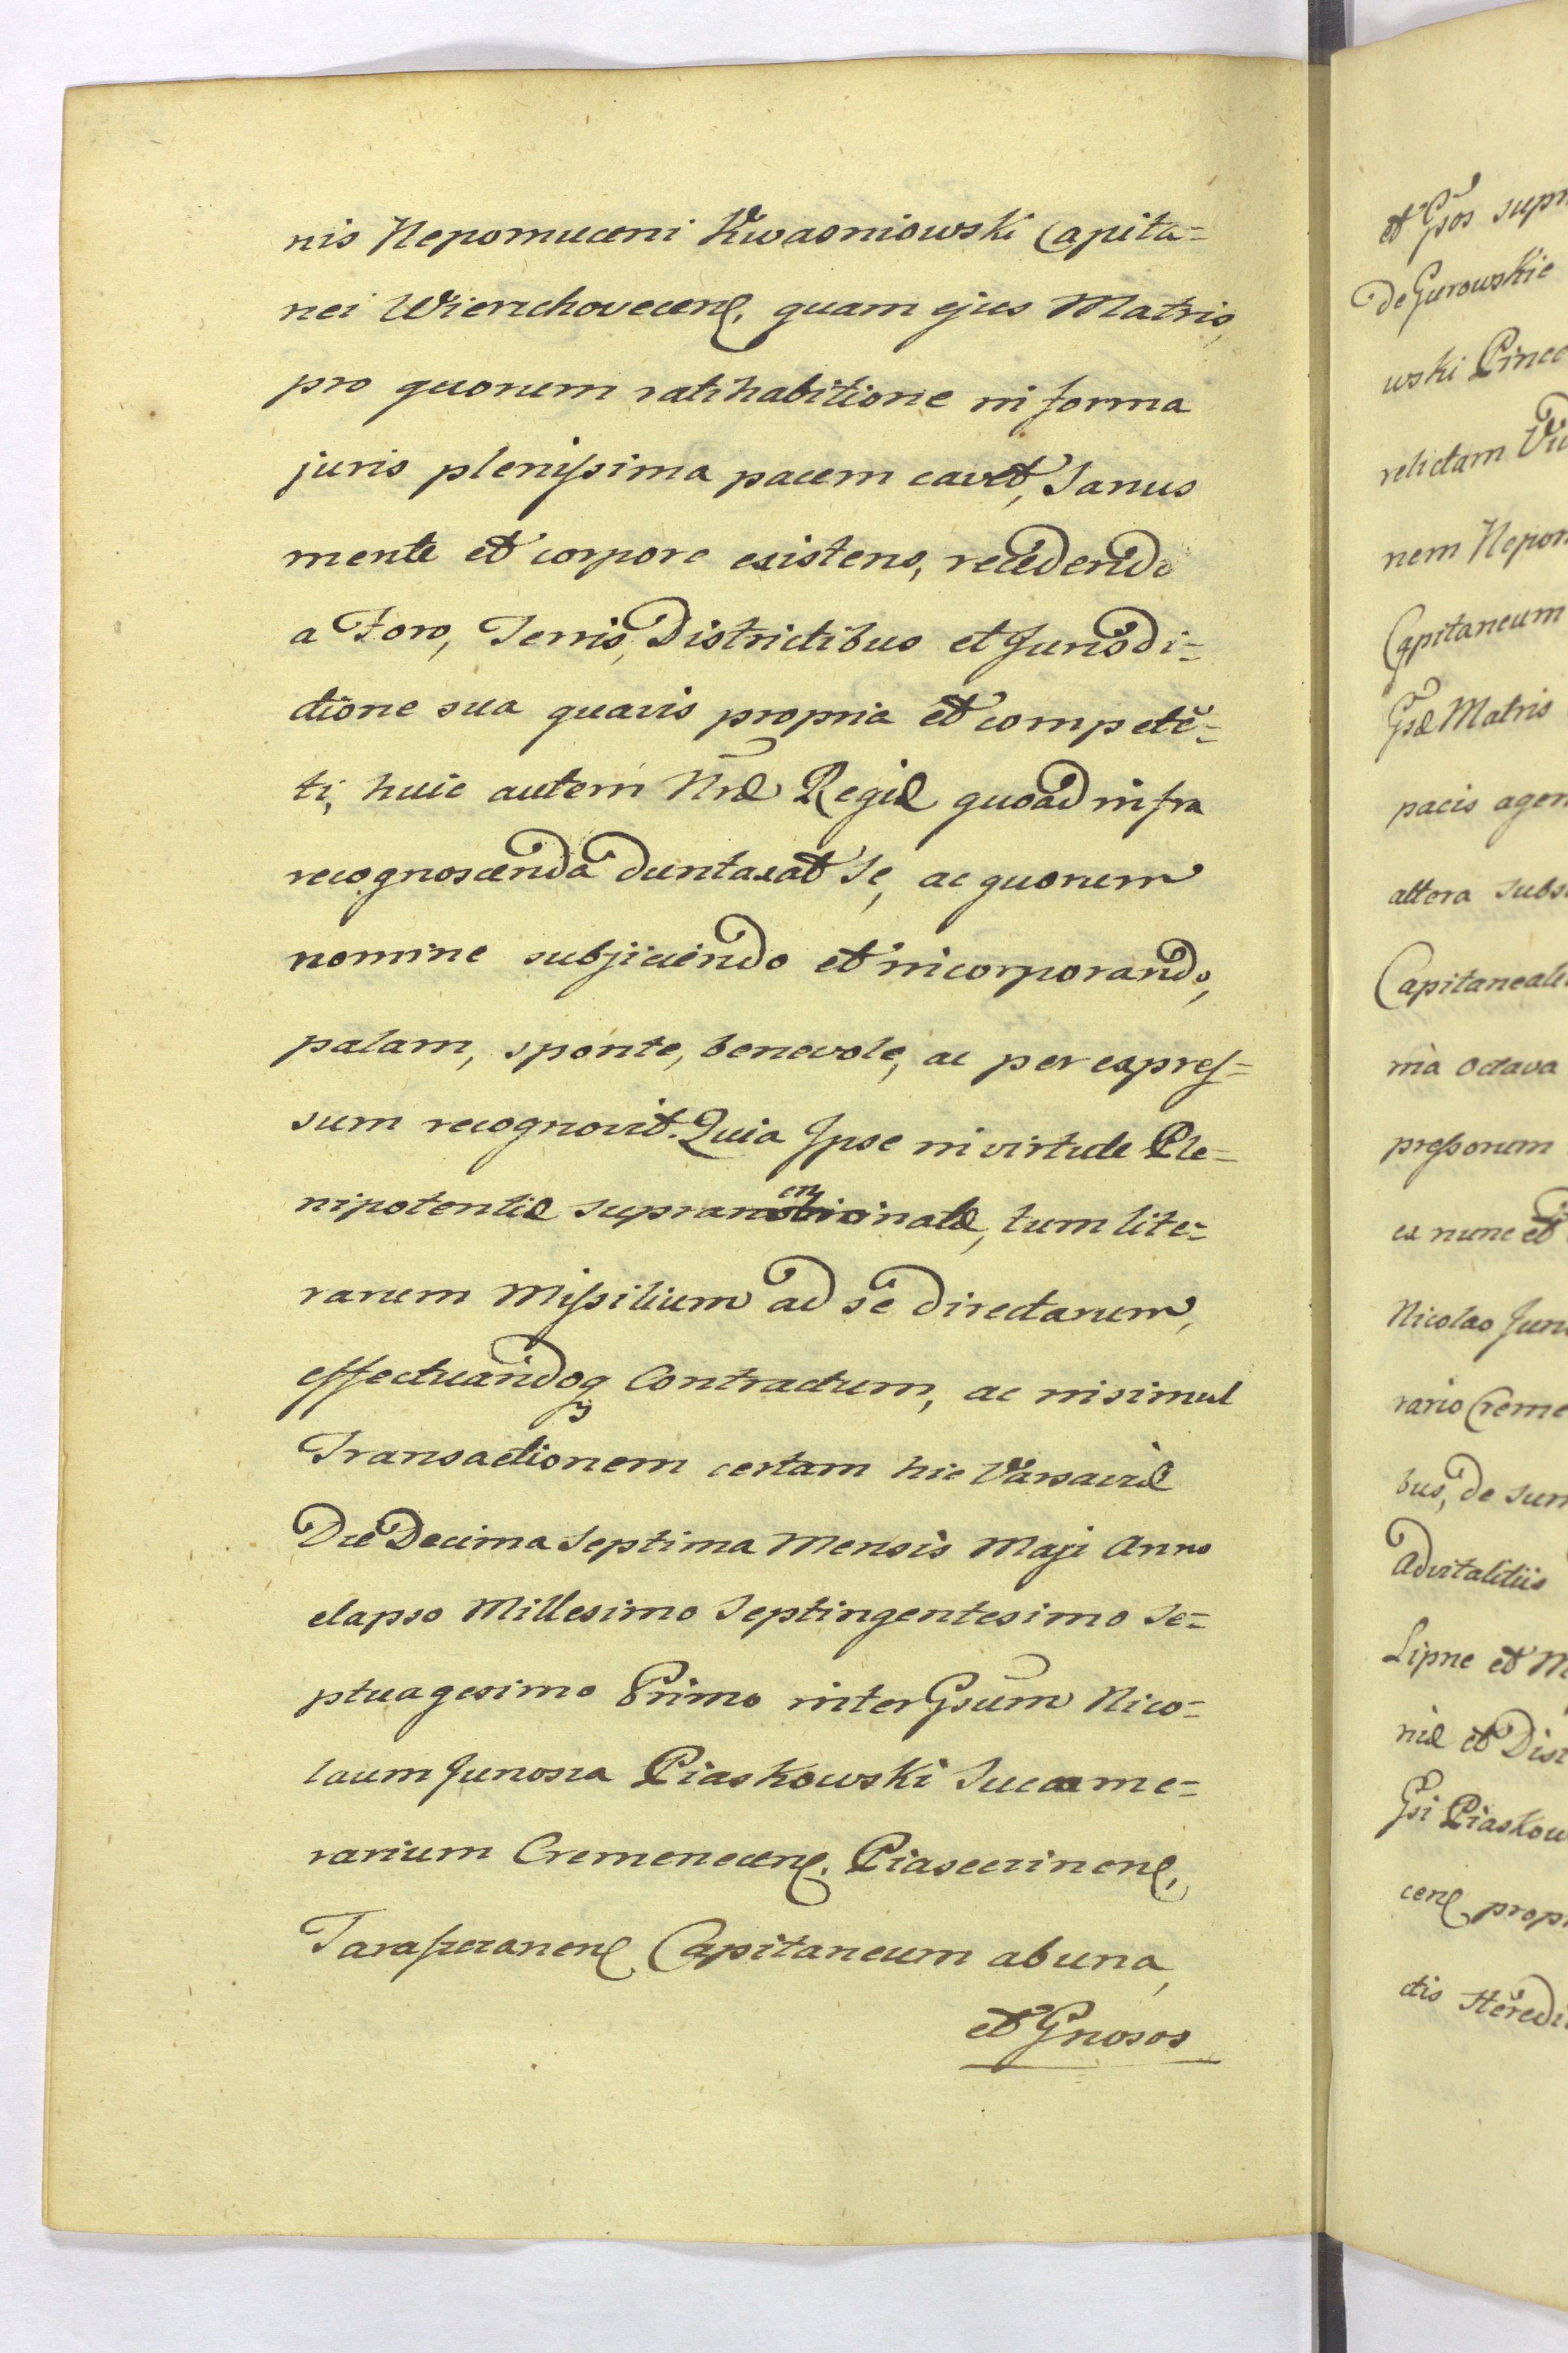 nis Nepomuceni Kwasniowski Capita=
nei Wierzchoveceñ, quam ejus Matris,
pro quorum ratihabitione in forma
juris plenissima pacem cavet, Sanus
mente et corpore existens, recedendo
a Foro, Terris, Districtibus et Jurisdi=
ctione sua quavis propria et competē=
ti, huic autem Nrae Regiae quoad infra
recognoscenda duntaxat Se, ac quorum
nomine subjiciendo et incorporando,
palam, sponte, benevole, ac per expres=
sum recognovit. Quia Ipse in virtute Ple=
nipotentiae supranominatae, tum lite=
rarum Missilium ad se directarum,
effectuandoq Contractum, ac insimul
Transactionem certam hic Varsaviae
Die Decima Septima Mensis Maji Anno
elapso Millesimo Septingentesimo Se=
ptuagesimo Primo inter Gsum Nico=
laum Junosza Piaskowski Succame=
rarium Cremeneceñ, Piaseczineñ,
Capitaneum ab una,
et Gnosos
et Gsos
De Gurowskie
wski
relictam
Capitaneum
Gsae Matris
pacis
altera
nia Octava
pressorum
ex nunc et
Nicolao
rario
bus, de
Advitalitiis
Lipne et
niae et
Gsi
ceñ
ctis